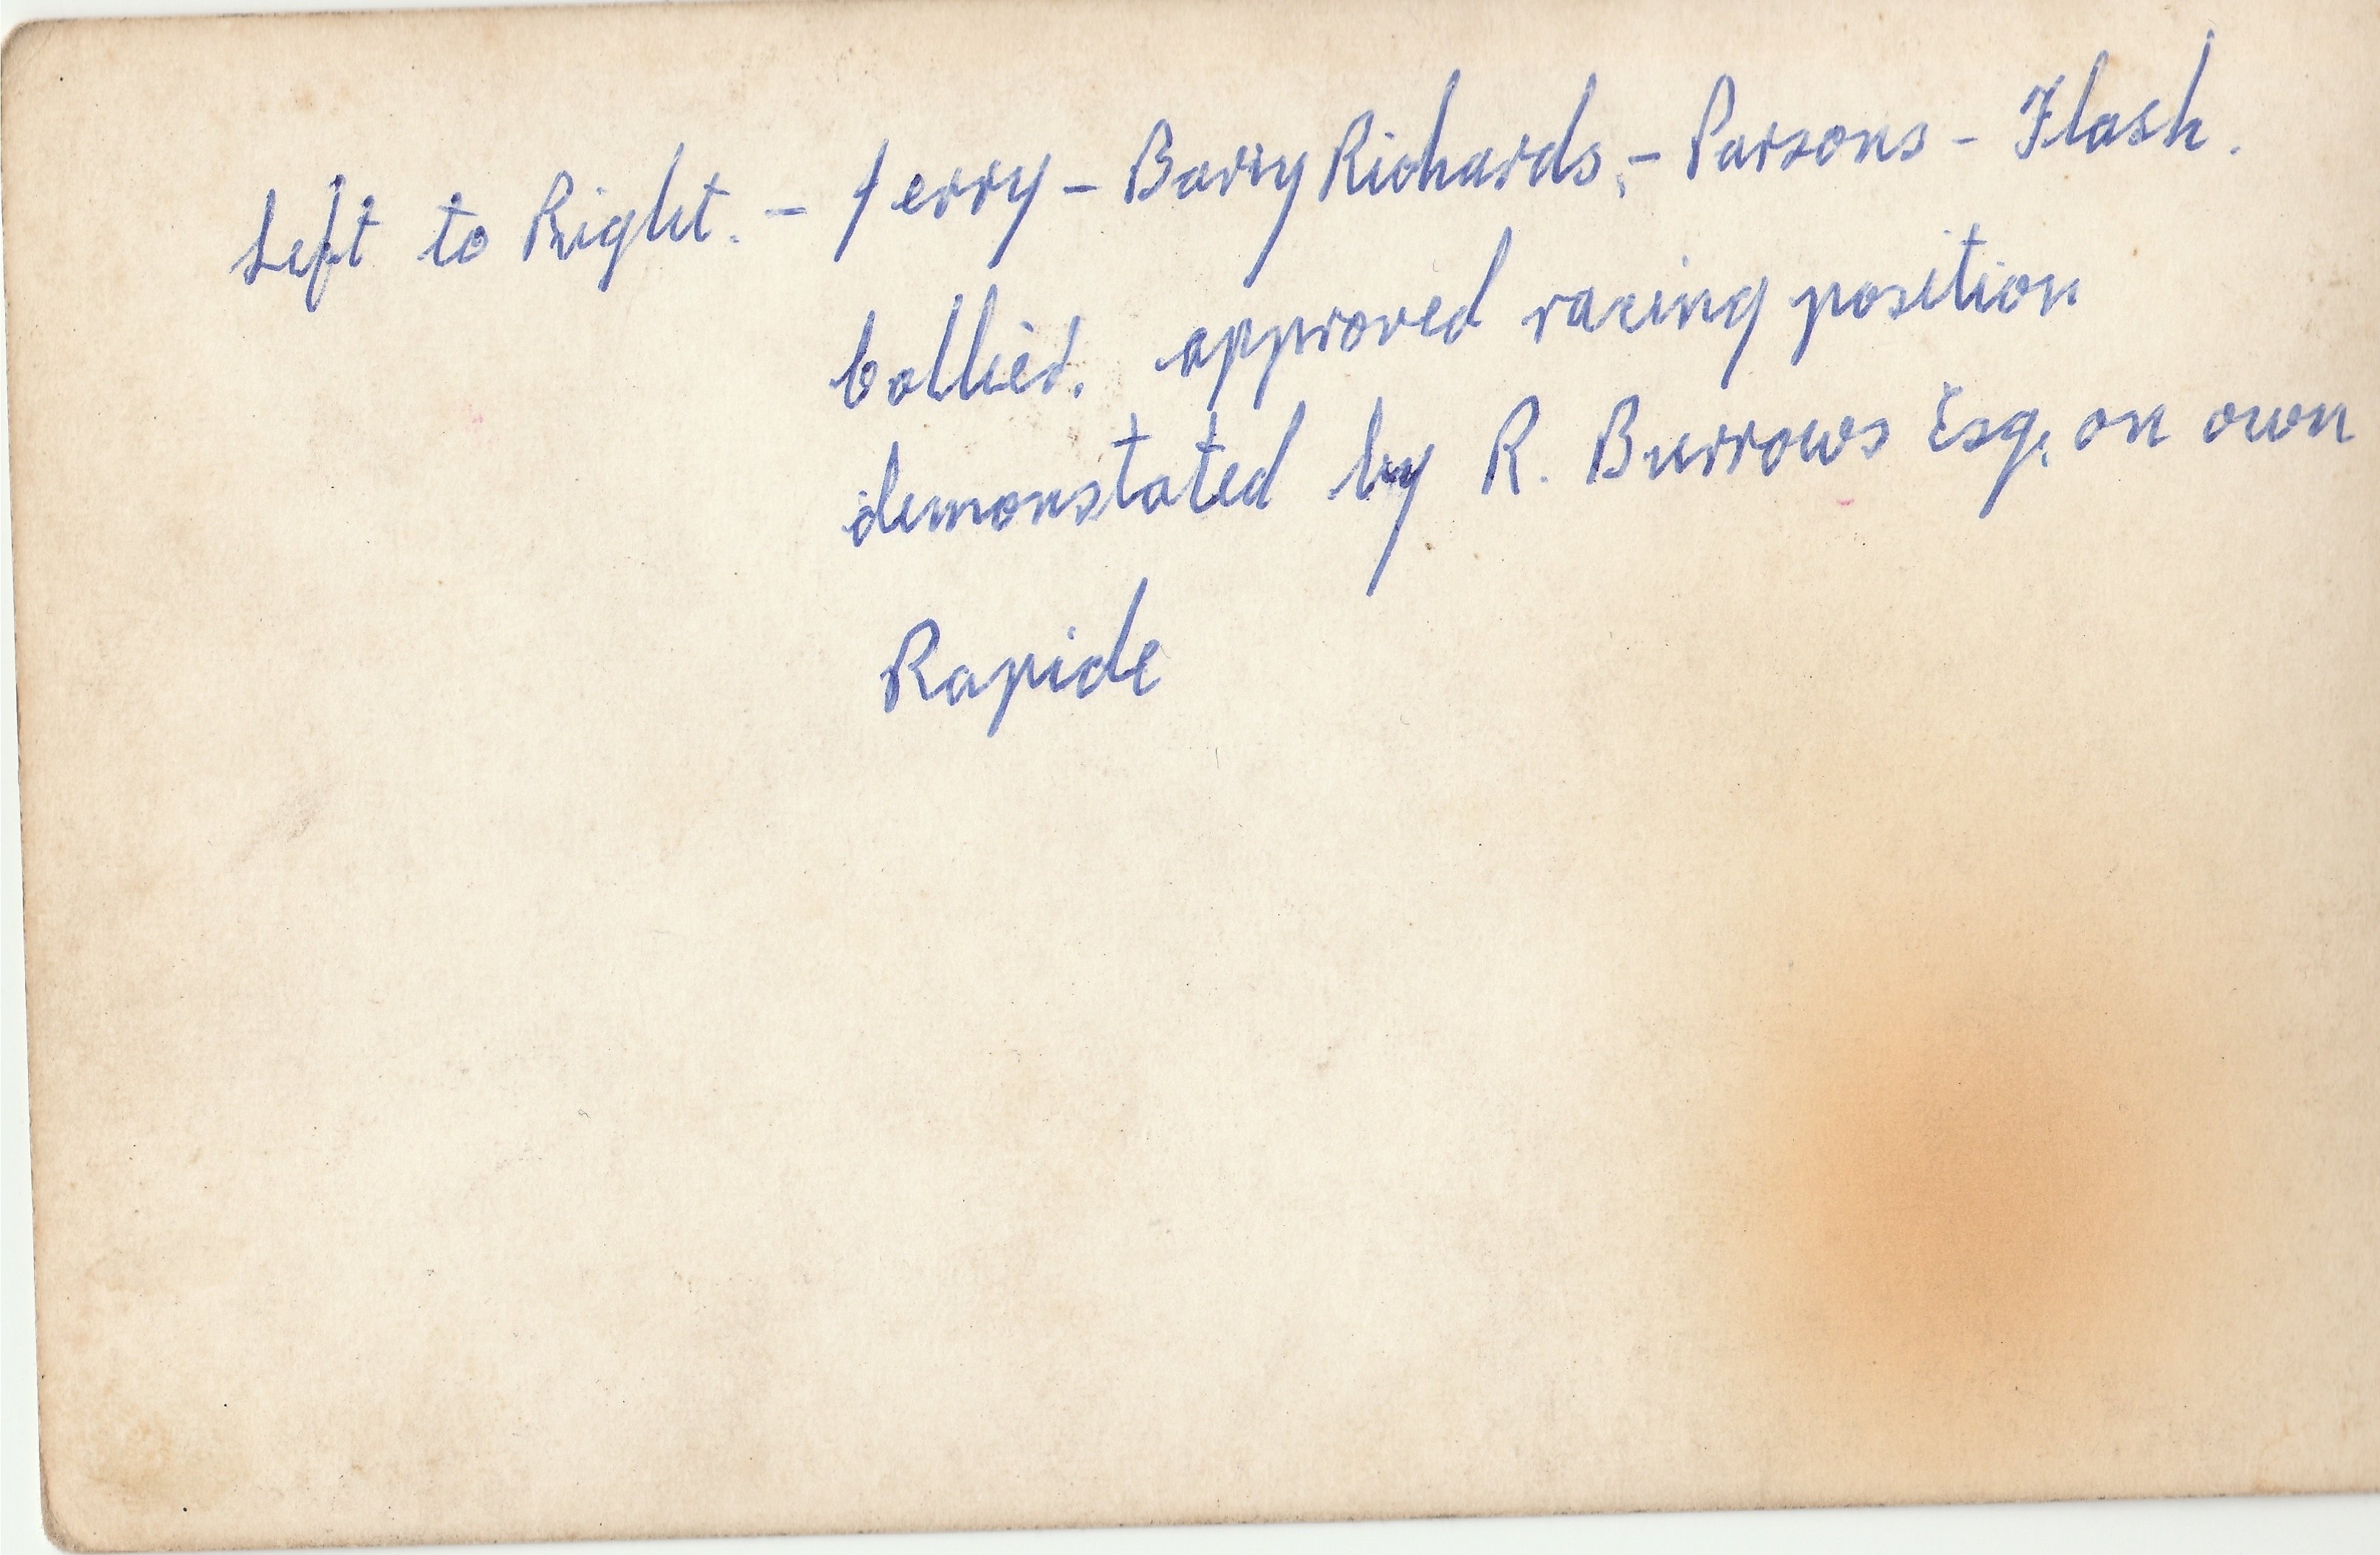 Left to Right. – Jerry – Barry Richards, – Parsons – Flash.
approved racing position
demonstated by R. Burrows Esq. on own
Rapide